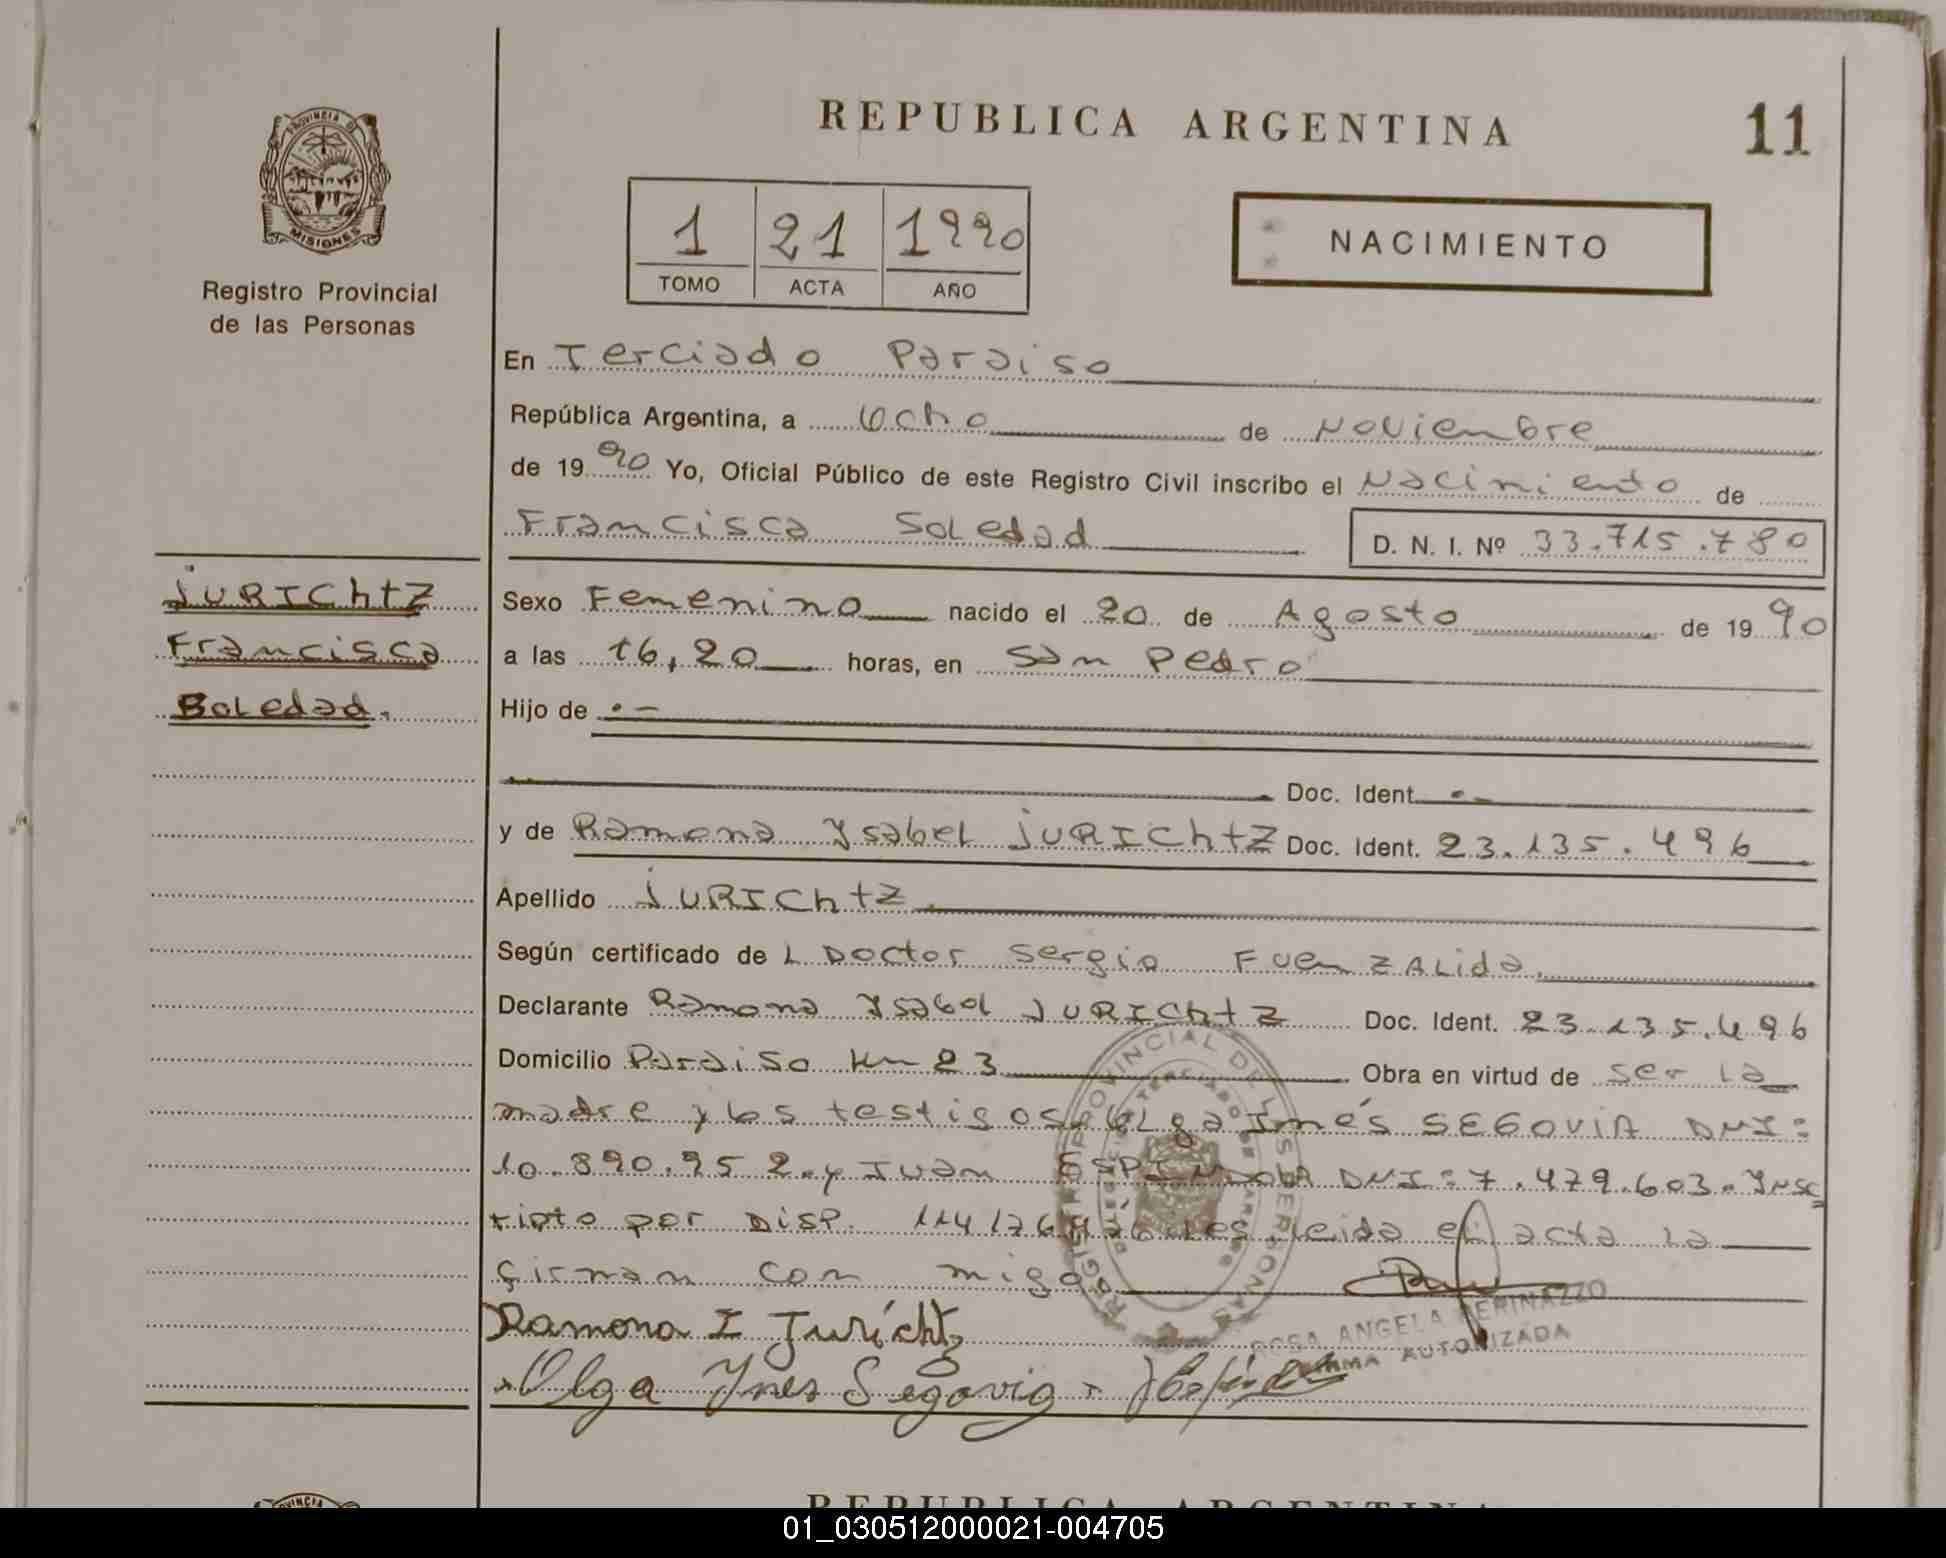 REPUBLICA ARGENTINA
11
PROVINCIA DE
MISIONES
Registro Provincial
de las Personas
1 21 1990
TOMO ACTA AÑO
NACIMIENTO
En Terciado Paraiso
República Argentina, a Ocho de Noviembre
de 1990 Yo, Oficial Público de este Registro Civil inscribo el Nacimiento de
Francisca Soledad D. N. I. Nº 33.715.780
jURIChtZ
Francisca
Soledad.
Sexo Femenino nacido el 20 de Agosto de 1990
a las 16,20 horas, en San Pedro
Hijo de .-
Doc. Ident. .-
y de Ramona Ysabel jURIChtZ Doc. Ident. 23.135.496
Apellido jURIChtZ.
Según certificado de L Doctor Sergio FuenZALida.
Declarante Ramona Ysabel jURIChtZ Doc. Ident. 23.135.496
Domicilio Paraiso Km 23 Obra en virtud de ser la
madre y los testigos Olga Inés SEGOVIA DNI:
10.890.952.y Juan ESPINDOLA DNI: 7.479.603. Ynsc
ripto por DISP. leida el acta la
firman con migo
REGISTRO PROVINCIAL DE LAS PERSONAS
ROSA ANGELA PERINAZZO
FIRMA AUTORIZADA
Ramona I Jurichtz
Olga Ynes Segovia
PROVINCIA
REPUBLICA ARGENTINA
01_030512000021-004705